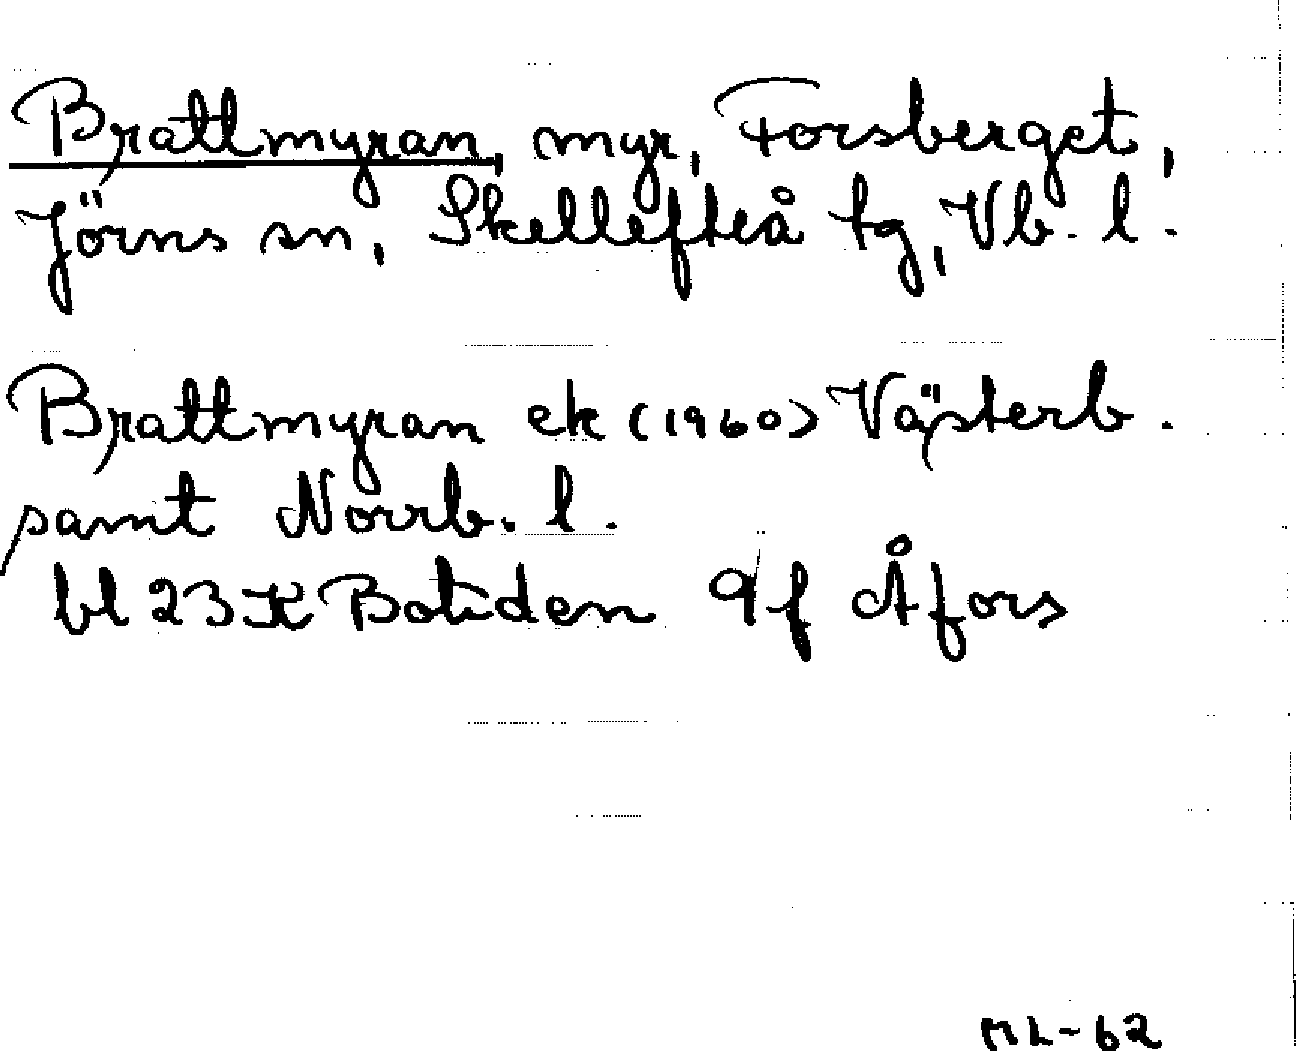 Brattmyran, myr, Forsberget,
Jörns sn, Skellefteå tg, Vb. l.
Brattmyran ek (1960) Västerb.
samt Norrb. l.
bl 23 K Boliden 9 f Åfors
ML-62